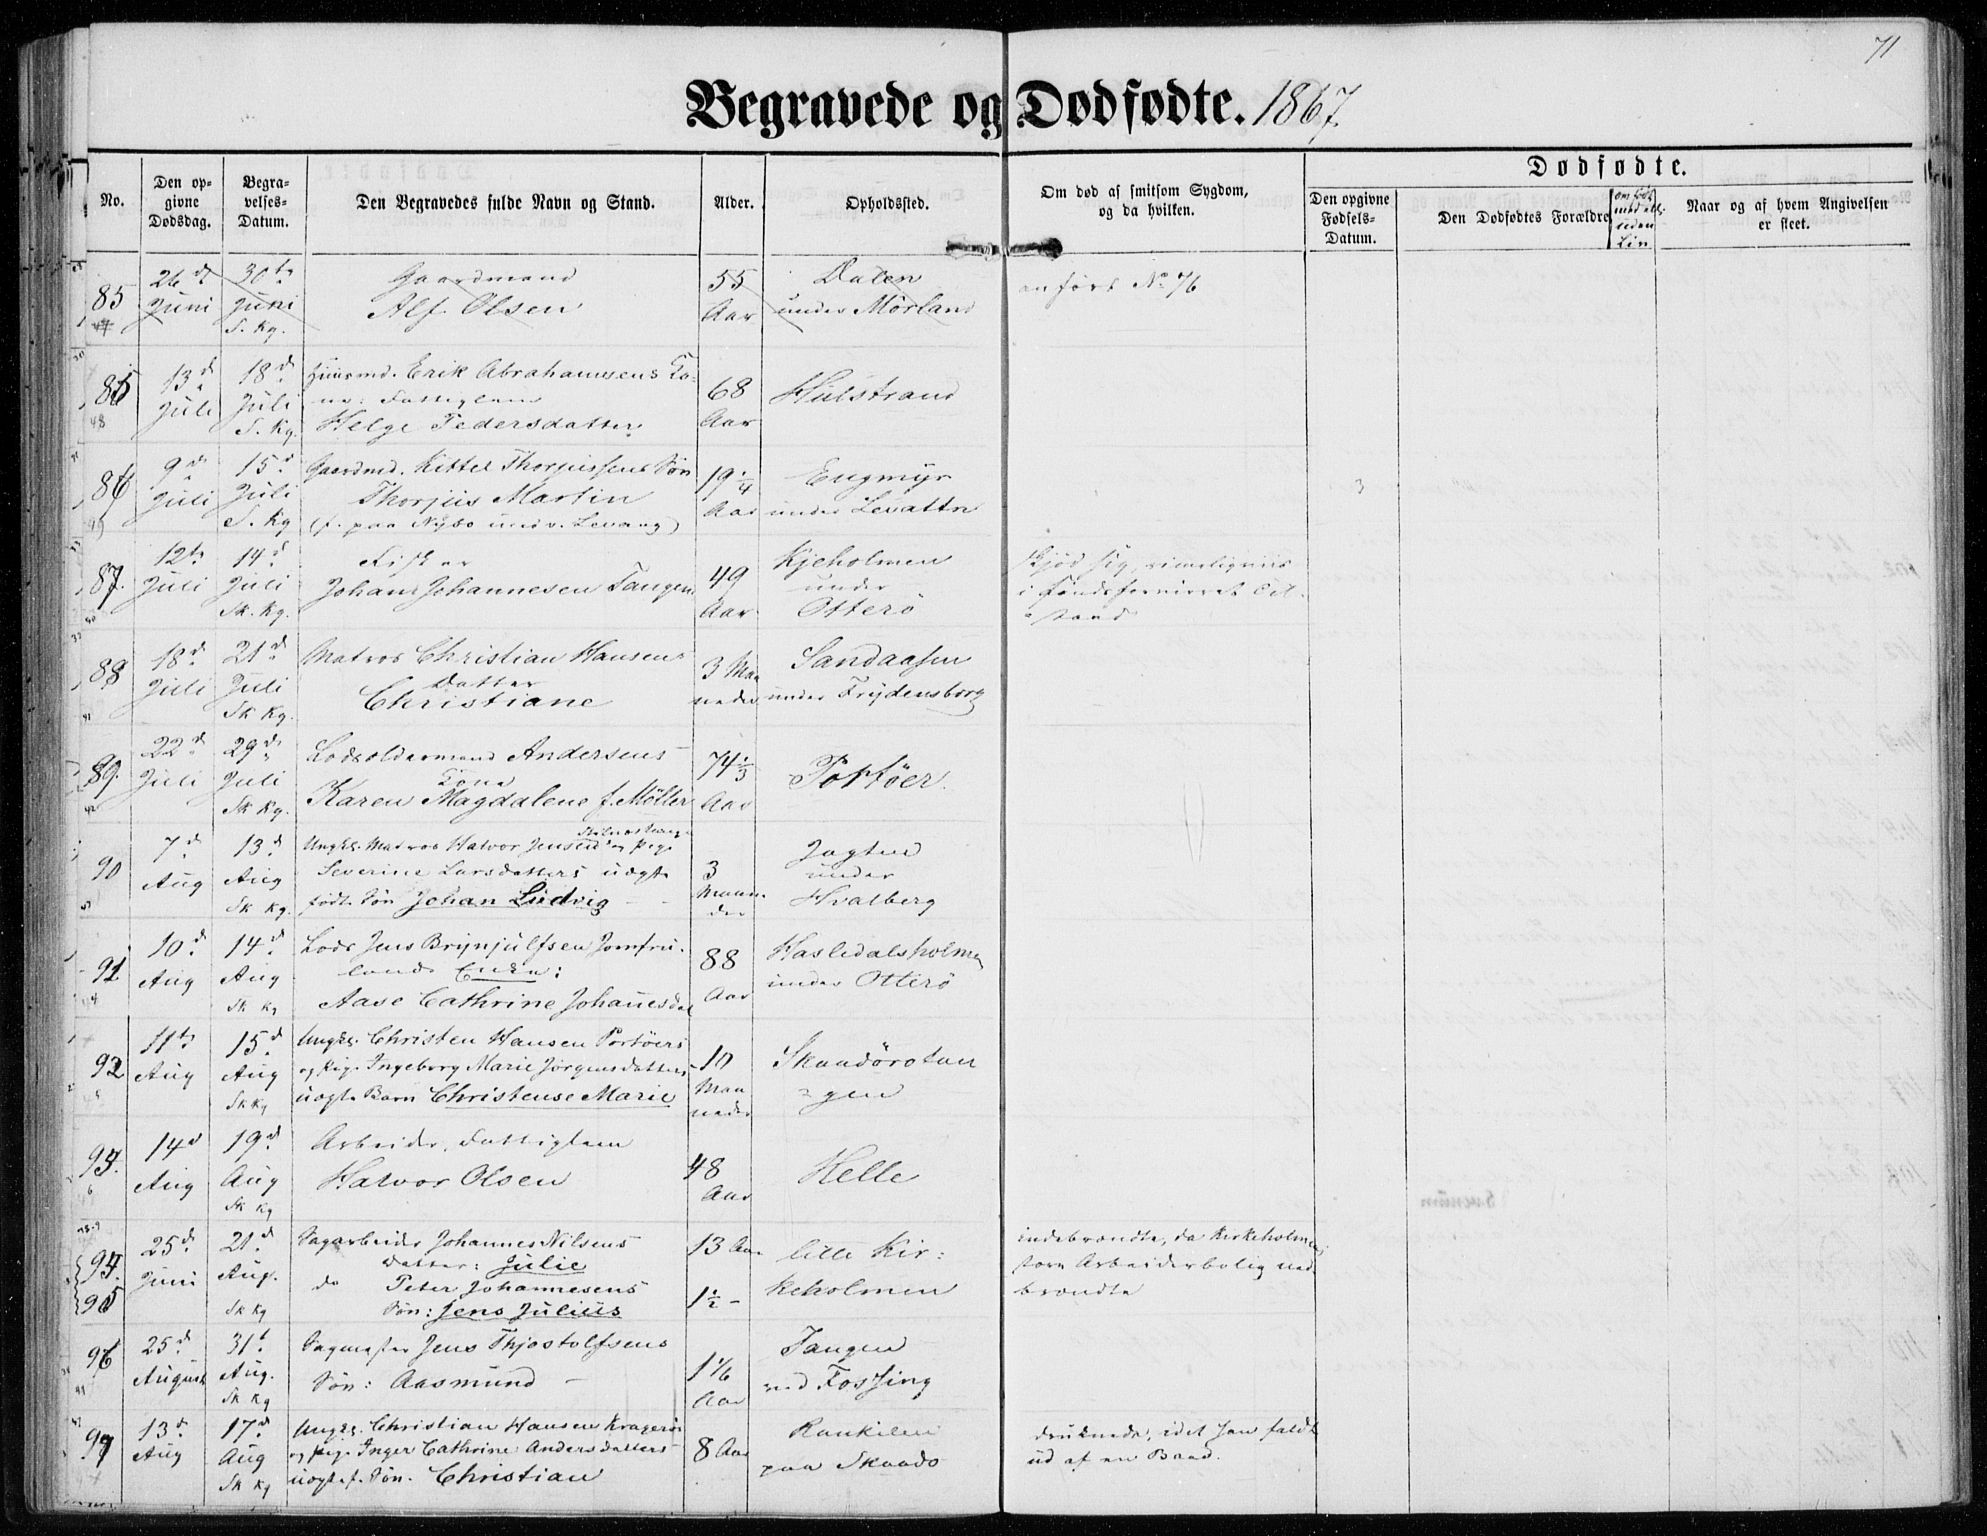 71
Begravede og Dødfødte. 1867.
No.
Den op-
givne
Dødsdag.
Begra-
velses-
Datum.
Den Begravedes fulde Navn og Stand.
Alder.
Opholdssted.
Om død af smitsom Sygdom,
og da hvilken.
Dødfødte.
Den opgivne
Fødsels-
Datum.
Den Dødfødtes Forældre
Naar og af hvem Angivelsen
er skeet.
85
26 d Juni
30te Juni
S. Kg.
Gaardmand
Alf Olsen
55 Aar
Dalen
under Mørland
anført No 76
85
13 d Juli
18 d Juli
S. Kg.
Huusmd. Erik Abrahamsens Ko-
ne: Fattiglem
Helge Pedersdatter
68 Aar
Hulstrand
86
9 d Juli
15 d Juli
S. Kg
Gaardmd. Kittel Thorjussens Søn
Thorjus Martin
(f. paa Nybo under Levang)
19 1/4 Aar
Engmyr
under
87.
12te Juli
14 d Juli
Sk. Kg.
Fisker
Johans Johannesen Tangen
49 Aar
Kjeholmen
under
Otterö
skjød sig, rimeligviis
i sindsforvirret Til-
stand
88
18 d Juli
21 d Juli
Sk Kg.
Matros Christian Hansens
Datter
Christiane
3 Maa
neder
Sandaasen
under Frydensborg
89.
22 d Juli
29 d Juli
Sk Kg.
Lodsoldermand Andersens
Kone
Karen Magdalene f. Møller
74 1/3 Aar
Portöer.
90
7 d Aug
13 d Aug
Sk Kg.
Ungk. Matros Halvor Jensens og Pige
Severine Larsdatters uægte
født Søn Johan Ludvig
3
Maane
der
Jagten
under
Hvalberg
91
10 d Aug
14 d Aug
Sk Kg
Lods Jens Brynjulfsen Jomfru-
lands Enke:
Aase Cathrine Johanesdat
88 Aar
Hasledalsholmen
under Otterö
92
11te Aug
15 d Aug
Sk Kg
Ungk. Christen Hansen Portöers
og Pige Ingeborg Marie Jörgensdatters
uægte Barn Christense Marie
10
Maa
neder
Skaadörotan
gen
93.
14 d Aug
19 d Aug
Sk Kg
Arbeider, Fattiglem
Halvor Olsen
48 Aar
Helle
94.
95
25 d Juni
21 d Aug.
Sk Kg
Sagarbeider Johannes Nilsens
Datter: Julie
do Peter Johannesens
Søn: Jens Julius
13 Aar
1 1/2 -
lille Kir-
keholmen
indebrændte, da Kirkeholmens
store Arbeiderbolig ned-
brændte
96
25 d August
31t Aug.
Sk Kg
Sagmester Jens Thjostolfsens
Søn: Aasmund
1 1/6 Aar
Tangen
ved Fossing
97
13 d Aug
17 d Aug
Sk Kg
Ungk. Christian Hansen Krageröe
og Pige Inger Cathrine Andersdatters
uægte f. Søn. Christian
8 Aar
Rankilen
paa Skaadö
druknede, idet han faldt
ud af en Baad.